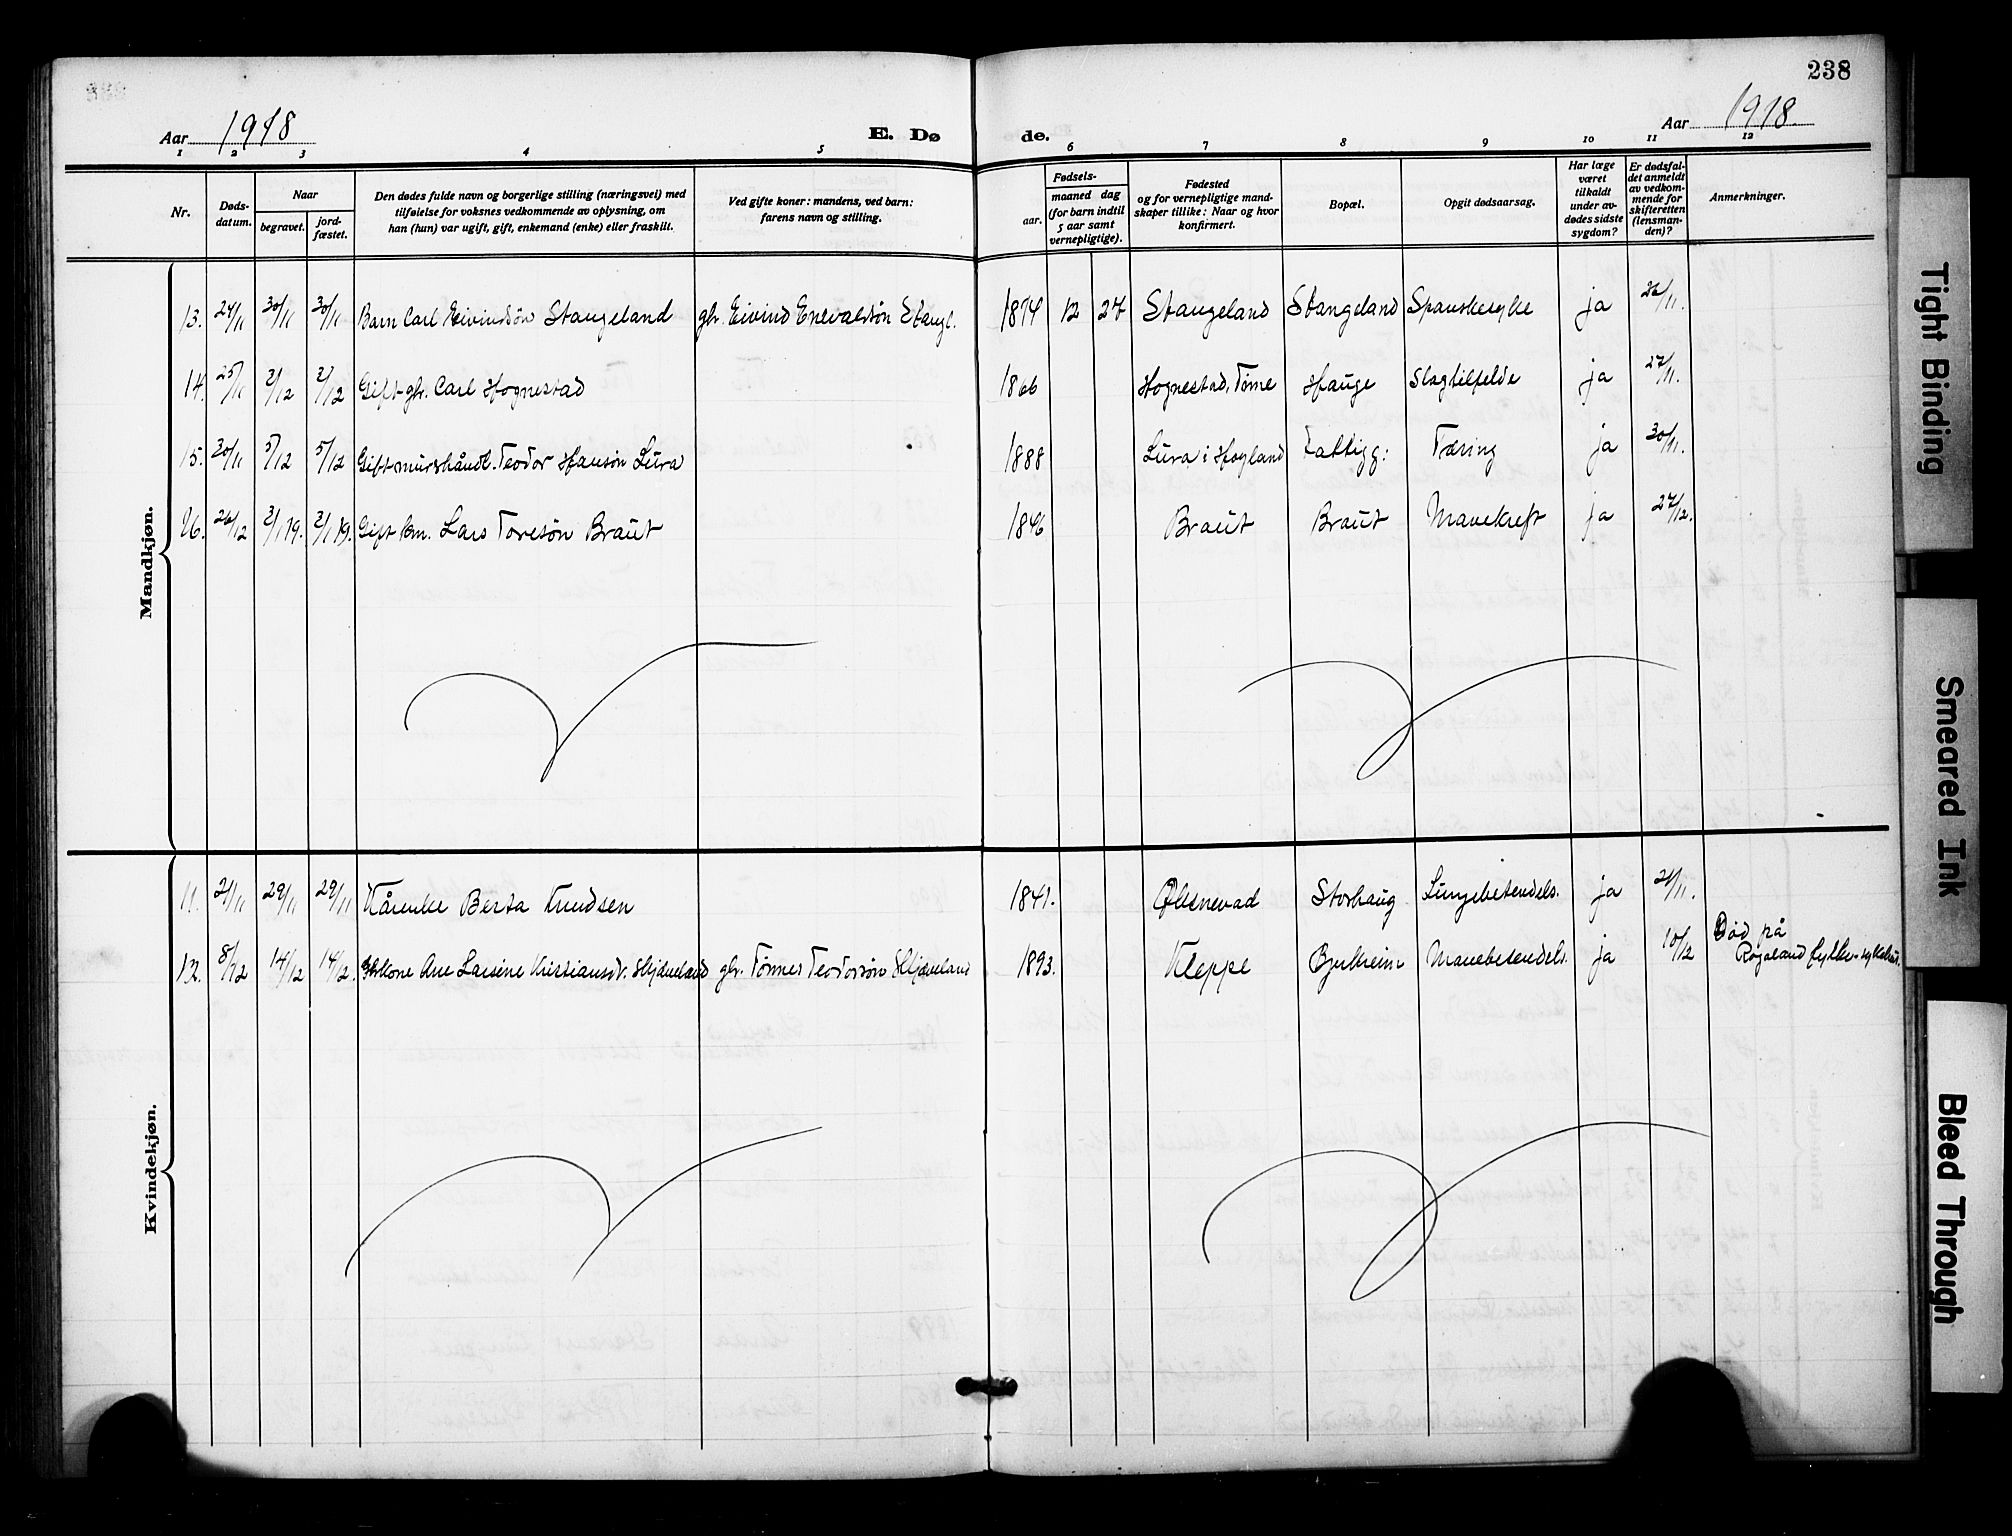 238
Aar 1918
E. Dø de.
Aar 1918.
1 2 3 4 5 6 7 8 9 10 11 12
Nr.
Døds-
datum.
Naar
begravet.
jord-
fæstet.
Den dødes fulde navn og borgerlige stilling (næringsvei) med
tilføielse for voksnes vedkommende av oplysning, om
han (hun) var ugift, gift, enkemand (enke) eller fraskilt.
Ved gifte koner: mandens, ved barn:
farens navn og stilling.
Fødsels-
aar.
maaned dag
(for barn indtil
5 aar samt
vernepligtige).
Fødested
og for vernepligtige mand-
skaper tillike: Naar og hvor
konfirmert.
Bopæl.
Opgit dødsaarsag.
Har læge
været
tilkaldt
under av-
dødes sidste
sygdom?
Er dødsfal-
det anmeldt
av vedkom-
mende for
skifteretten
(lensman-
den)?
Anmerkninger.
Mandkjøn.
13. 24/11 30/11 30/11 Barn Carl Eivindsøn Stangeland gbr. Eivind Enevaldsøn Stangl. 1914 12 27 Stangeland Stangeland Spanskesyke ja 26/11.
14. 25/11 2/12 2/12 Gift gbr. Carl Hognestad 1866 Hognestad, Time Hauge Slagtilfelde ja 27/11.
15. 30/11 5/12 5/12 Gift murerhåndl. Teodor Hansøn Lura 1888 Lura i Høyland Fattigg: Tæring ja 30/11.
16. 26/12 2/1 19. 2/1 19. Gift km. Lars Toresøn Braut 1846 Braut Braut Mavekreft ja 27/12.
Kvindekjøn.
11. 21/11 29/11 29/11 Berta Knudsen 1841. Ølsnevad Storhaug Lungebetendels. ja 21/11.
12. 8/12 14/12 14/12. Gbrkone Ane Larsine Kristiansdr. Skjæveland gbr. Tønnes Teodorsøn Skjæveland 1893. Kleppe Bjelkeim Mavebetendels. ja 10/12 Død på
Rogaland fylkes-sykehus.
Tight Binding
Smeared Ink
Bleed Through